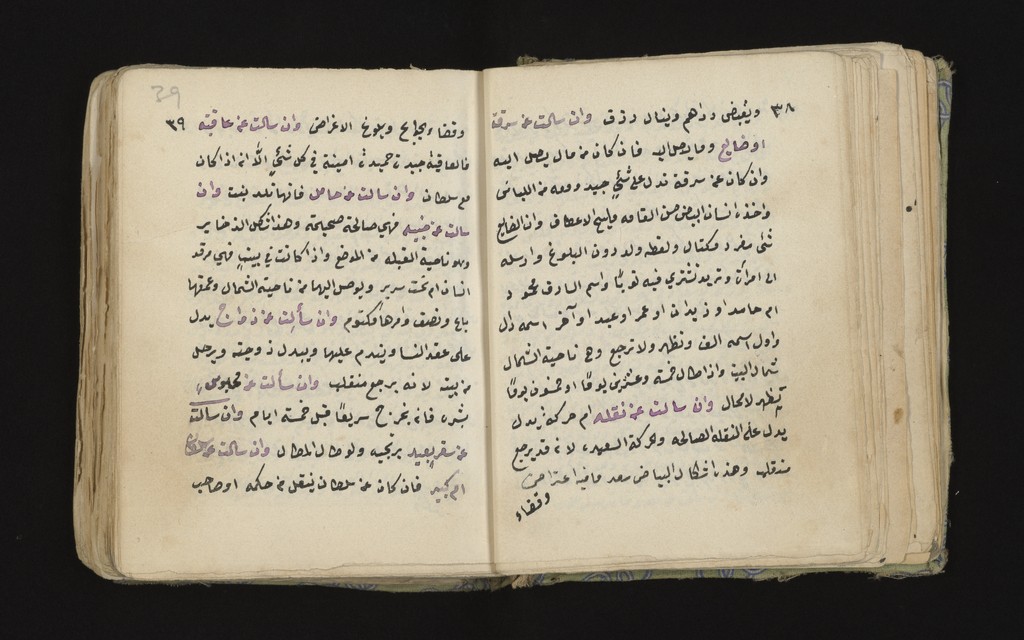 ٣٨
ويقبض دراهم وينال رزق وان سالت عن سرقة
او ضايع وما يوصل اليه فان كان من مال يصل اليه
وان كان عن سرقة تدل على شئ جيد ودفعه من اللباس
واخذه انسان ابيض حسن القامه مليح الاعطاف وان الضايع
شئ مفرد مكتال ولقطه ولد دون البلوغ وارسله
الى امرأة وتريد تشتري فيه ثوبًا واسم السارق محمود
ام حامد او زيدان او عمر او عبد او آخر اسمه دال
واول اسمه الف وتظهر ولا ترجع وهي ناحية الشمال
شمال البيت واذا طال خمسة وعشرين يومًا او خمسون يومًا
تظهر لا محال وان سالت عن نقله ام حركة يدل
يدل على النقله الصالحه والحركة السعيده لانه قد يرجع
منقلب وهذه اشكال البياض سعد ما فيه اعتراض
وقضاء
39
٣٩
وقضاء وبلوغ الاغراض وان سالت عن عاقبته
فالعاقبة جيدة حميدة امينة في كل شئ الله انه اذا كان
مع سلطان وان سالت عن حامل فانها تلد بنت وان
سالت عن خبيه فهي صالحة صحيحة وهذا شكل الذخاير
وهو ناحية القبله من الموضع واذا كانت في بيتٍ فهي مرقد
انسان ام تحت سرير ويوصل اليها من ناحية الشمال وعمقها
باع ونصف وامرها مكتوم وان سألت عن زواج يدل
على عقد النسا ويندم عليها ويبدل زوجته ويرحل
من بيته لانه يرجع منقلب وان سألت عن محبوس
بشره فانه يخرج سريعًا قبل خمسة ايام وان سالت
عن سفر بعيد يرتجيه ولو طال المطال وان سالت عن
ام كبير فان كان عن سلطان ينتقل من حكمه او صاحب